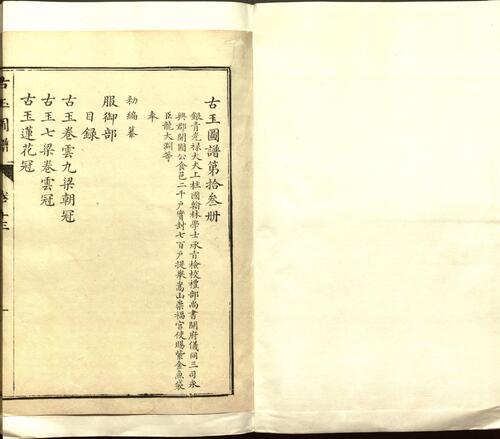 古玉圖譜第拾叁册
銀青光祿大夫上柱國翰林學士承旨檢校禮部尚書開府儀同三司永
興郡開國公食邑二千戶實封七百戶提舉嵩山崇福宮使賜紫金魚袋
臣龍大淵等
奉
勅編纂
服御部
目録
古玉卷雲九梁朝冠
古玉七梁卷雲冠
古玉蓮花冠
古玉圖譜
卷十三